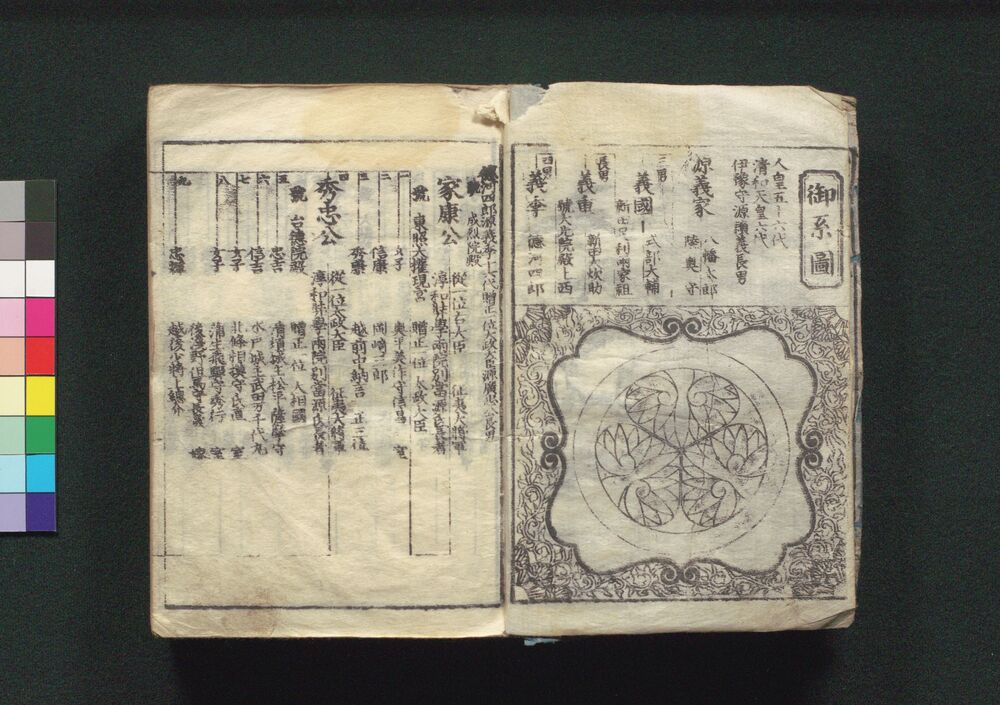 御系圖
人皇五十六代
清和天皇六代
伊豫守源頼義長男
源義家 八幡太郎 陸奥守
三男 義國 式部大輔 新田足利両家祖
長男 義重 新田大炊助
號大光院殿上西
四男 義季 德河四郎
德河四郎源義季十六代贈正一位太政大臣源廣忠公長男
號 成烈院殿
家康公 從一位右大臣 征夷大将軍
淳和奨學両院別當源氏長者
號 東照大權現宮 贈正一位太政大臣
一 女子 奥平美作守信昌 室
二 信康 岡崎三郎
三 秀康 越前中納言 正三位
四 秀忠公 從一位太政大臣 征夷大将軍
淳和奨學両院別當源氏長者
號 台德院殿 贈正一位 大相國
五 忠吉 清須城主松平薩摩守
六 信吉 水戸城主武田万千代丸
七 女子 北條相模守氏直 室
八 女子 蒲生飛騨守秀行 室
後淺野但馬守長晟 嫁
九 忠輝 越後少将上総介